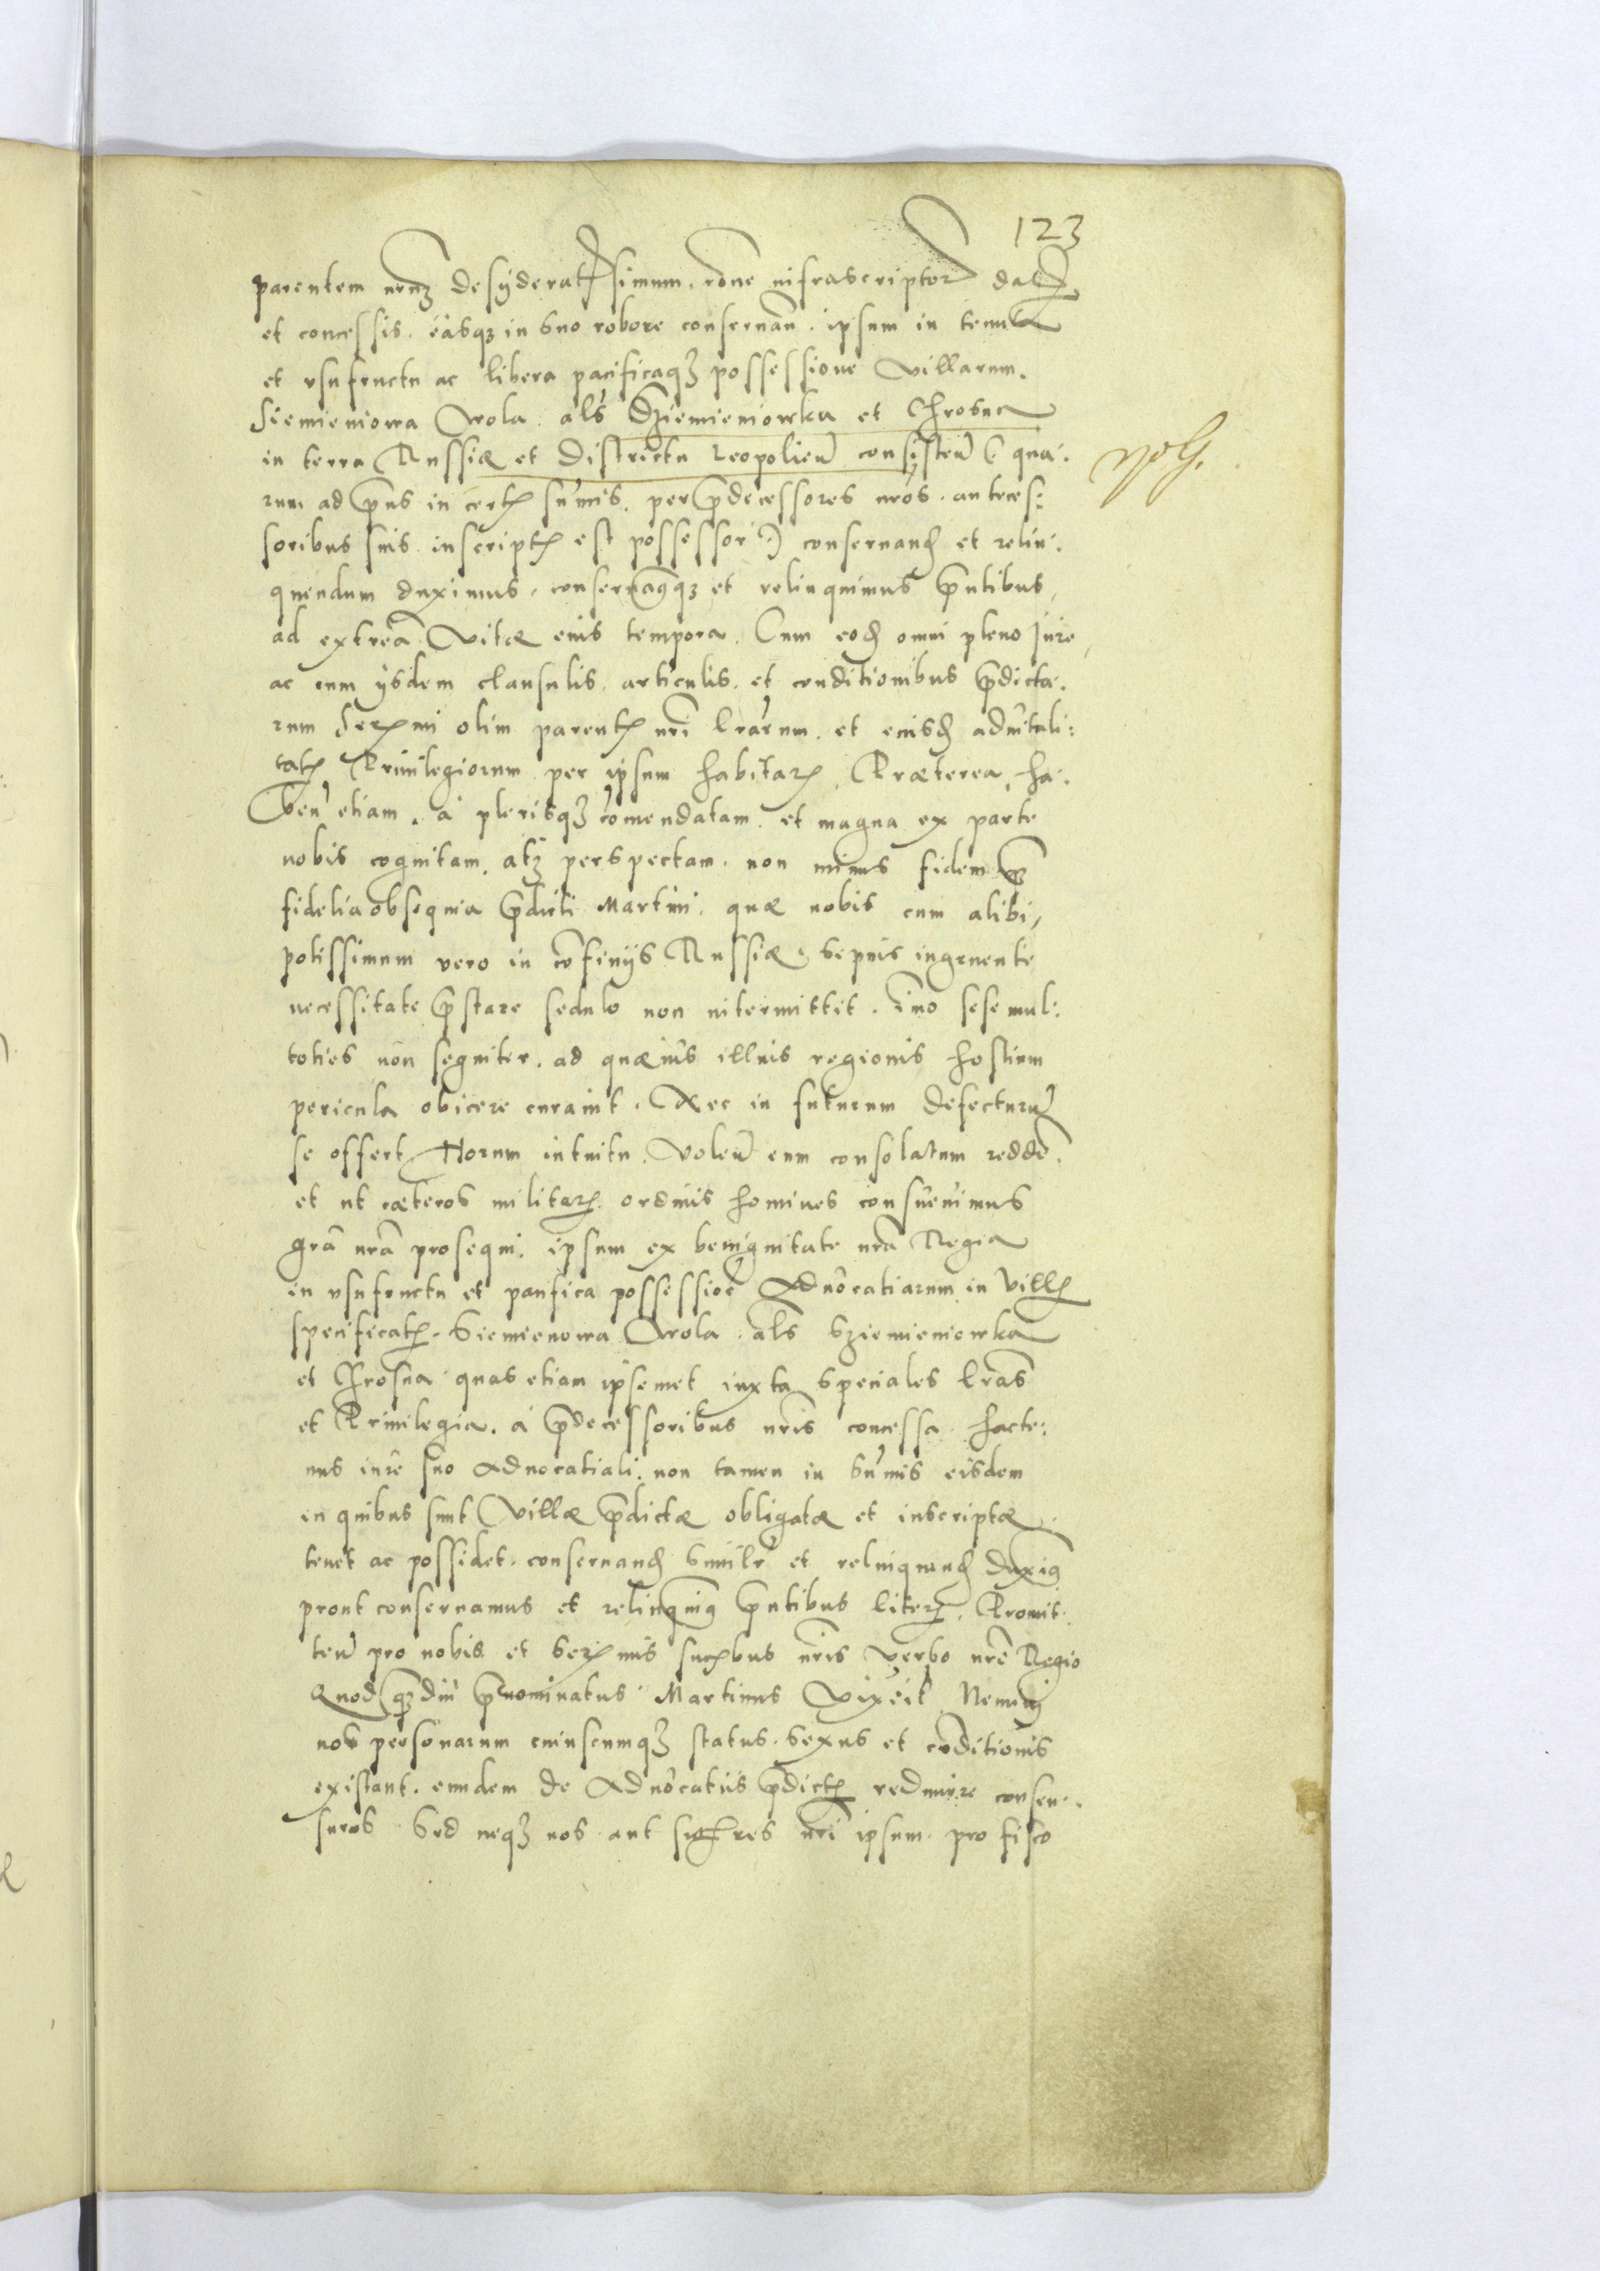 123
parentem nrum desyderatissimum, rone infrascriptor dat
et concessis, easqz in suo robore conservan. ipsum in tenuta
et usufructu ac libera pacificaqz possessione villarum.
Siemieniowa Wola als Sziemieniowka et Chrosna
in terra Russiæ et Districtu Leopolien consisten (qua:
rum ad pns in certis summis, per pdecessores nros, anteces:
soribus suis inscriptis est possessor) conservand et relin:
quendum duximus, conservamusqz et relinquimus pntibus,
ad extrema vitæ eius tempora. Cum eod omni pleno jure,
ac cum ysdem clausulis, articulis, et conditionibus pdicta:
rum Sermi olim parentis nri lrarum, et eiusd advitali:
tatis Privilegiorum per ipsum habitar. Præterea, ha:
ben etiam, á plerisqz comendatam, et magna ex parte
nobis cognitam, atqz perspectam, non minus fidem qz
fidelia obsequia pdicti Martini, quæ nobis cum alibi,
potissimum vero in cofinijs Russiæ sepius ingruente
necessitate pstare sedulo non intermittit, imo sese mul:
toties non segniter, ad quævis illius regionis hostium
pericula obicere curavit. Nec in futurum defecturu
se offert, Horum intuitu, Volen eum consolatum redde.
et ut cæteros militaris ordinis homines consuevimus
gra nra prosequi, ipsum ex benignitate nra Regia
in usufructu et pacifica possessioe Advocatiarum in villis
specificatis, Siemienowa Wola als Sziemieniowka
et Chrosna quas etiam ipsemet iuxta speciales lras
et Privilegia, á pdecessoribus nris concessa hacte:
nus iure suo Advocatiali, non tamen in summis eisdem
in quibus sunt Villæ pdictæ obligatæ et inscriptæ
tenet ac possidet, conservand similr et relinquend duxim9
prout conservamus et relinquim9 pntibus literis. Promit:
ten pro nobis et Sermis succribus nris verbo nro Regio
Quod quadiu pnominatus Martinus vixerit, Nemini
nos personarum cuiuscumqz status, sexus et coditionis
existant, eundem de Advocatiis pdictis redimere consen:
suros Sed neqz nos aut succres nri ipsum pro fisco